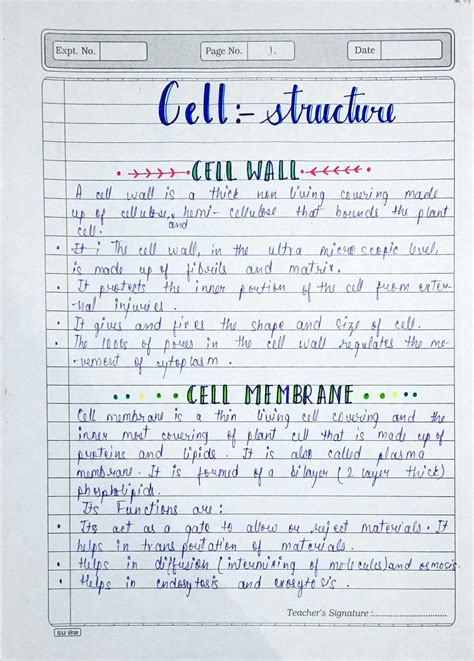 Expt. No.
Page No. 1.
Date
Cell:- structure
CELL WALL
A cell wall is a thick non living covering made
up of cellulose, hemi-cellulose that bounds the plant
and
cell.
• It i The cell wall, in the ultra microscopic level,
is made up of fibrils and matrix.
• It protects the inner portion of the cell from exter-
nal injuries.
• It gives and fixes the shape and size of cell.
• The 100s of pores in the cell wall regulates the mo-
vement of cytoplasm.
CELL MEMBRANE
Cell membrane is a thin living cell covering and the
inner most covering of plant cell that is made up of
proteins and lipids. It is also called plasma
membrane. It is formed of a bilayer (2 layer thick)
phospholipids.
Its Functions are:
• Its act as a gate to allow or reject materials. It
helps in transportation of materials.
• Helps in diffusion (intermixing of molecules) and osmosis.
• Helps in endosytosis and exosytosis.
Teacher's Signature :